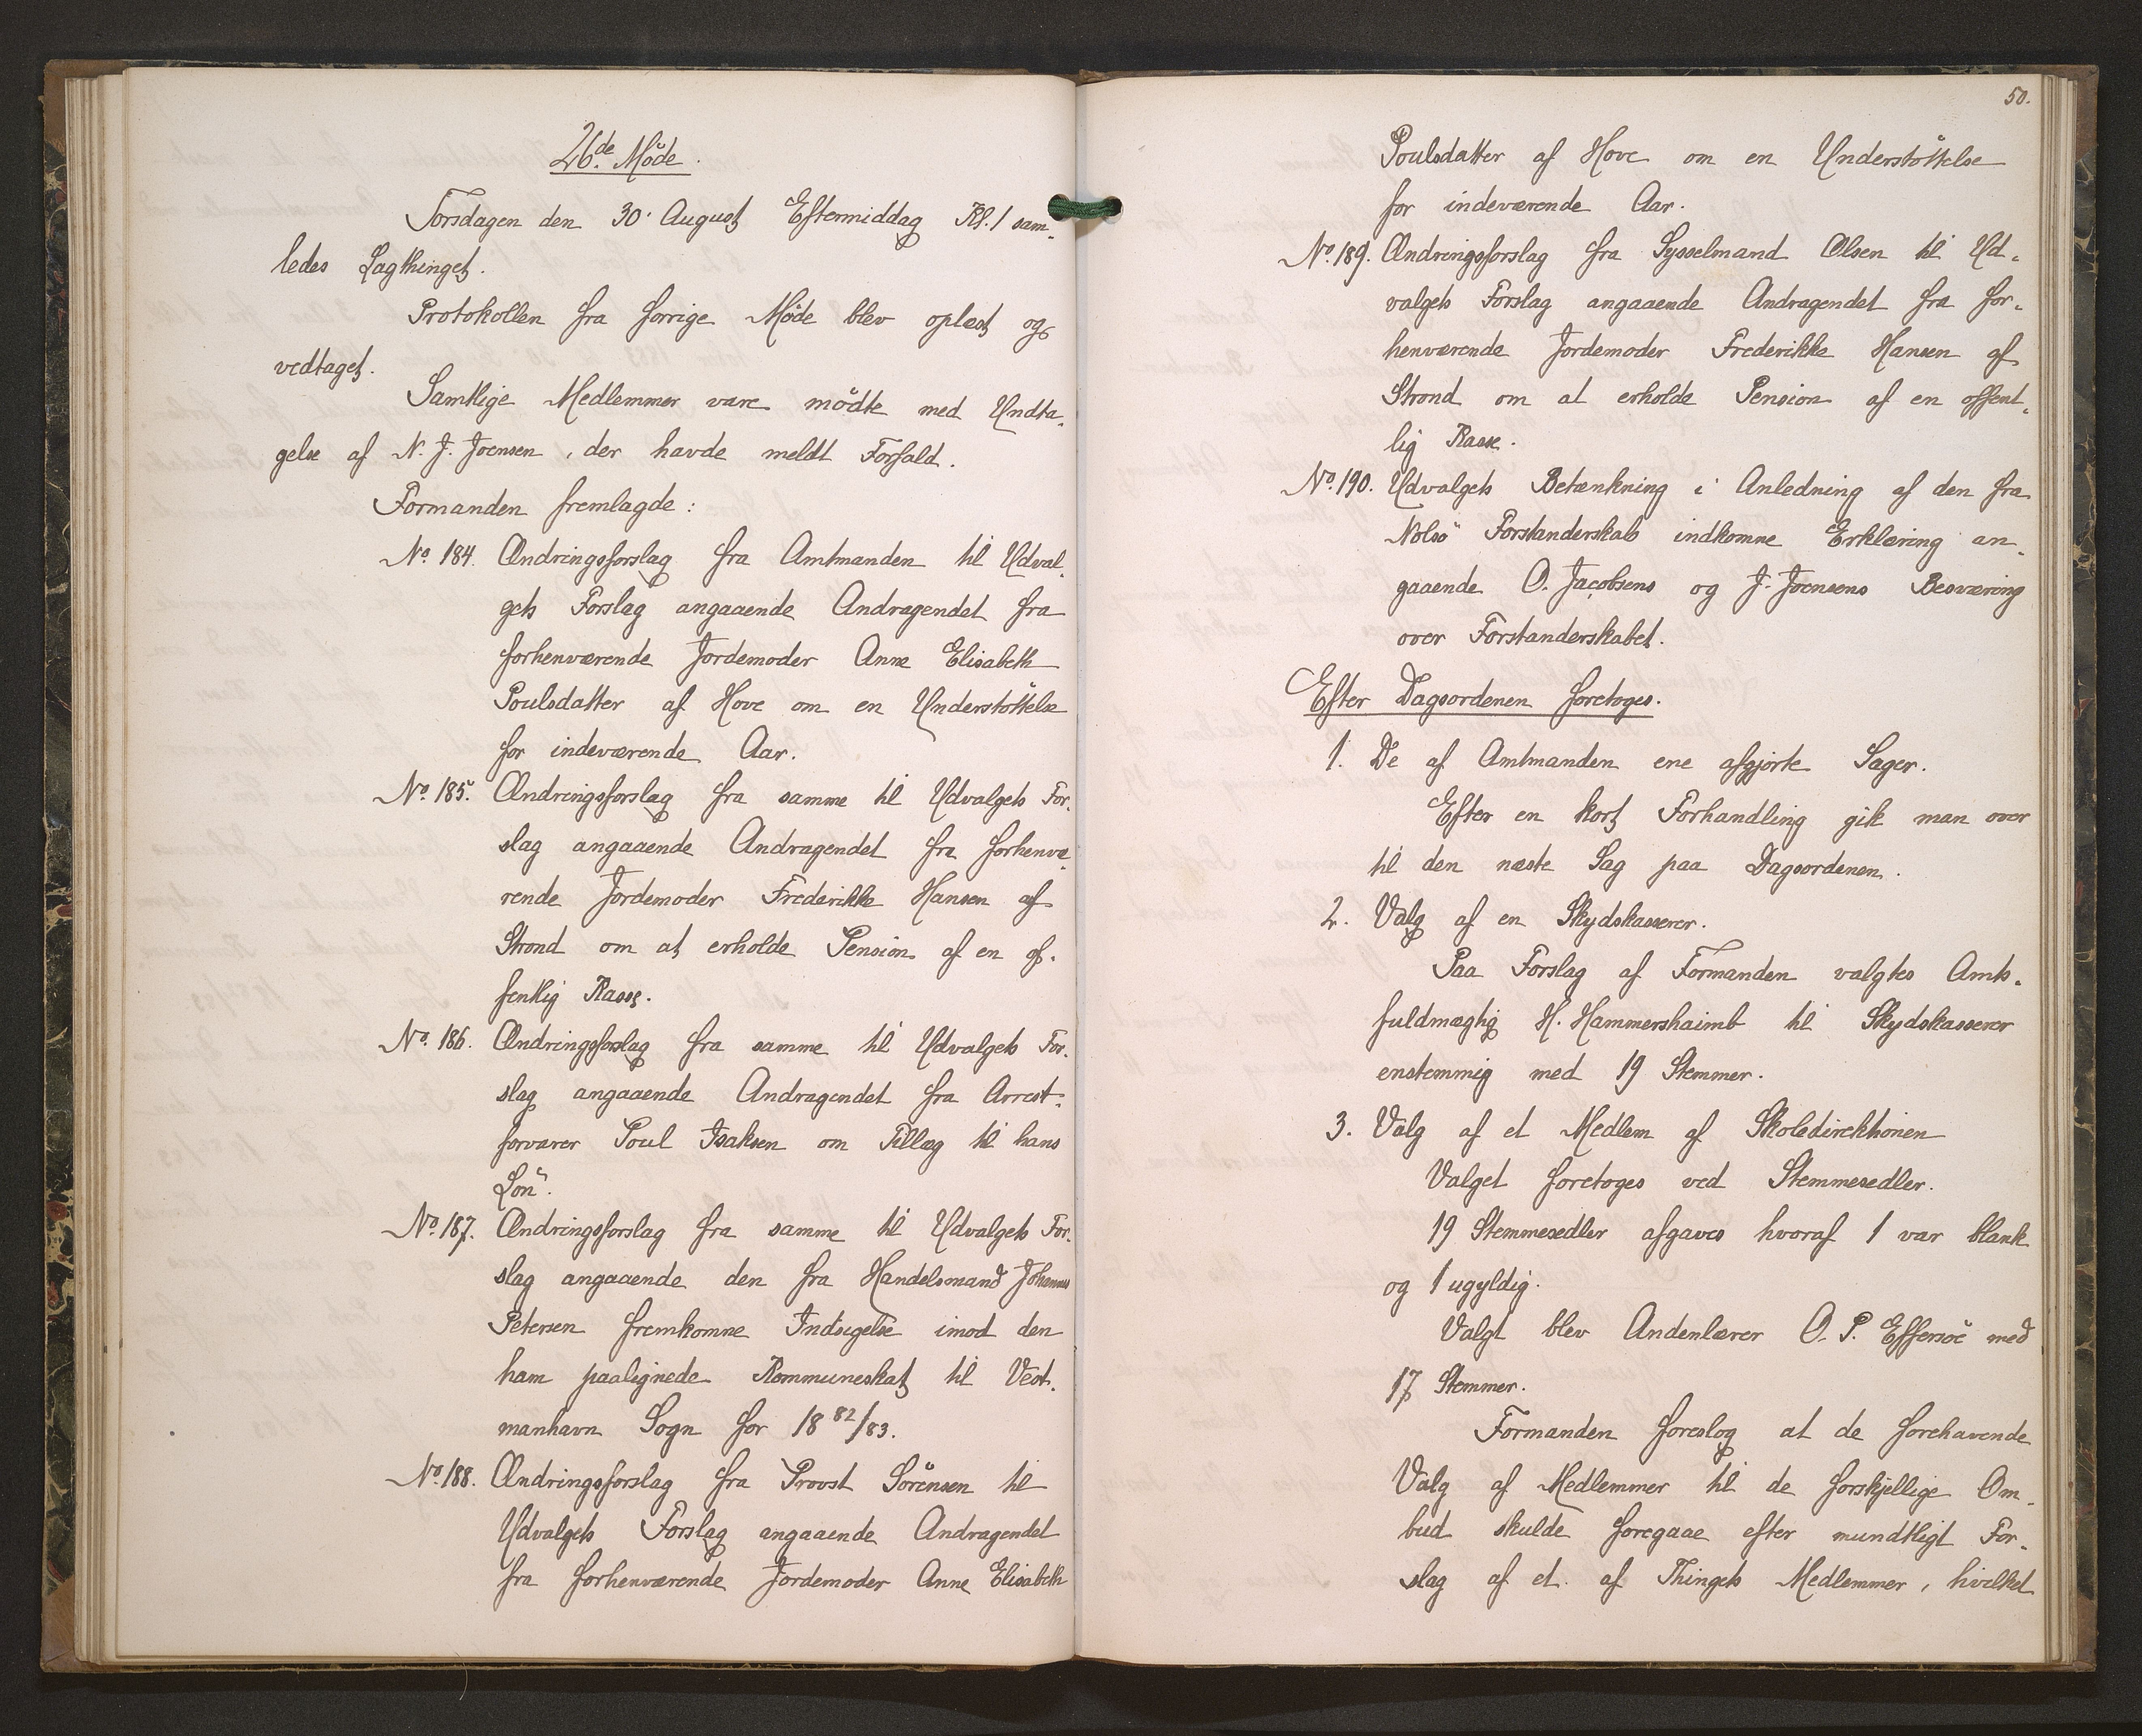 26.de Möde.
Torsdagen den 30. August Eftermiddag Kl. 1 sam-
ledes Lagthinget.
Protokollen fra forrige Möde blev oplæst og
vedtaget.
Samtlige Medlemmer vare mödte med Undta-
gelse af N. J. Joensen, der havde meldt Forfald.
Formanden fremlagde:
No. 184. Ændringsforslag fra Amtmanden til Udval-
gets Forslag angaaende Andragendet fra
forhenværende Jordemoder Anne Elisabeth
Poulsdatter af Hove om en Understöttelse
for indeværende Aar.
No. 185. Ændringsforslag fra samme til Udvalgets For-
slag angaaende Andragendet fra forhenvæ-
rende Jordemoder Frederikke Hansen af
Strond om at erholde Pension af en of-
fentlig Kasse.
No. 186. Ændringsforslag fra samme til Udvalgets For-
slag angaaende Andragendet fra Arrest-
forvarer Poul Isaksen om Tillæg til hans
Lön.
No. 187. Ændringsforslag fra samme til Udvalgets For-
slag angaaende den fra Handelsmand Johannes
Petersen fremkomne Indsigelse imod den
ham paalignede Kommuneskat til Vest-
manhavn Sogn for 1882/83.
No. 188. Ændringsforslag fra Provst Sörensen til
Udvalgets Forslag angaaende Andragendet
fra forhenværende Jordemoder Anne Elisabeth
50.
Poulsdatter af Hove om en Understöttelse
for indeværende Aar.
No. 189. Ændringsforslag fra Sysselmand Olsen til Ud-
valgets Forslag angaaende Andragendet fra for-
henværende Jordemoder Frederikke Hansen af
Strond om at erholde Pension af en offent-
lig Kasse.
No. 190. Udvalgets Betænkning i Anledning af den fra
Nolsö Forstanderskab indkomne Erklæring an-
gaaende O. Jacobsens og J. Joensens Besværing
over Forstanderskabet.
Efter Dagsordenen foretoges.
1. De af Amtmanden ene afgjorte Sager.
Efter en kort Forhandling gik man over
til den næste Sag paa Dagsordenen.
2. Valg af en Skydskasserer.
Paa Forslag af Formanden valgtes Amts-
fuldmægtig H. Hammershaimb til Skydskasserer
enstemmig med 19 Stemmer.
3. Valg af et Medlem af Skoledirektionen
Valget foretoges ved Stemmesedler.
19 Stemmesedler afgaves hvoraf 1 var blank
og 1 ugyldig.
Valgt blev Andenlærer O. P. Effersöe med
17 Stemmer.
Formanden foreslog at de forehavende
Valg af Medlemmer til de forskjellige Om-
bud skulde foregaae efter mundtligt For-
slag af et af Thingets Medlemmer, hvilket